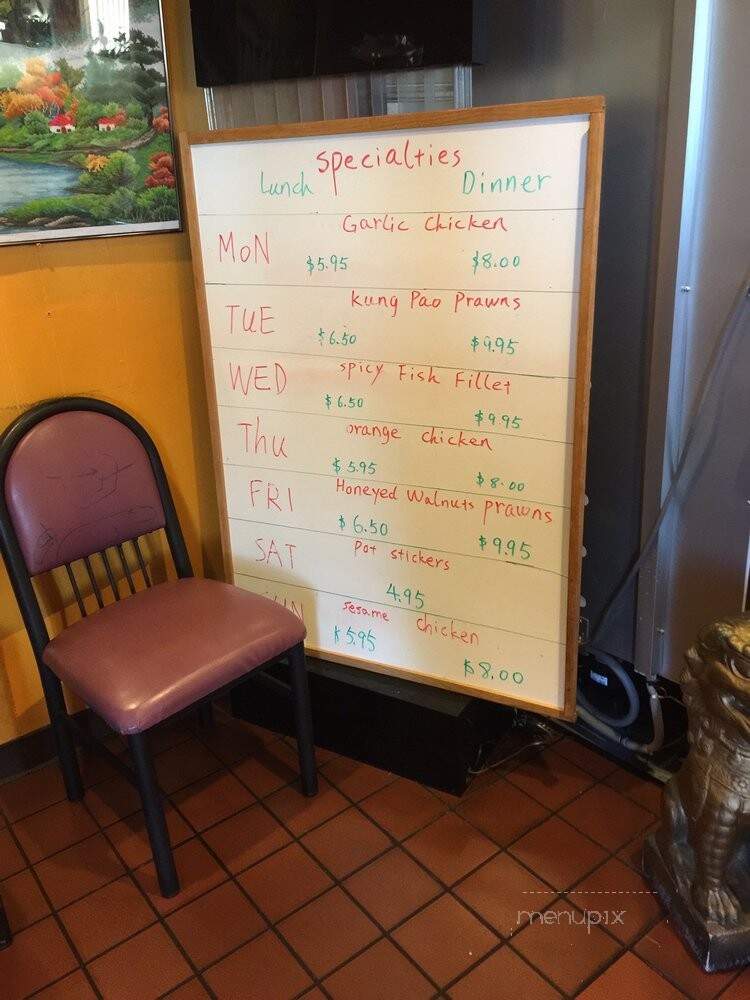 Specialties
Lunch Dinner
Garlic Chicken
MON $5.95 $8.00
Kung Pao Prawns
TUE $6.50 $9.95
Spicy Fish Fillet
WED $6.50 $9.95
orange chicken
Thu $5.95 $8.00
Honeyed Walnuts prawns
FRI $6.50 $9.95
Pot stickers
SAT 4.95
sesame chicken
SUN $5.95 $8.00
menupix